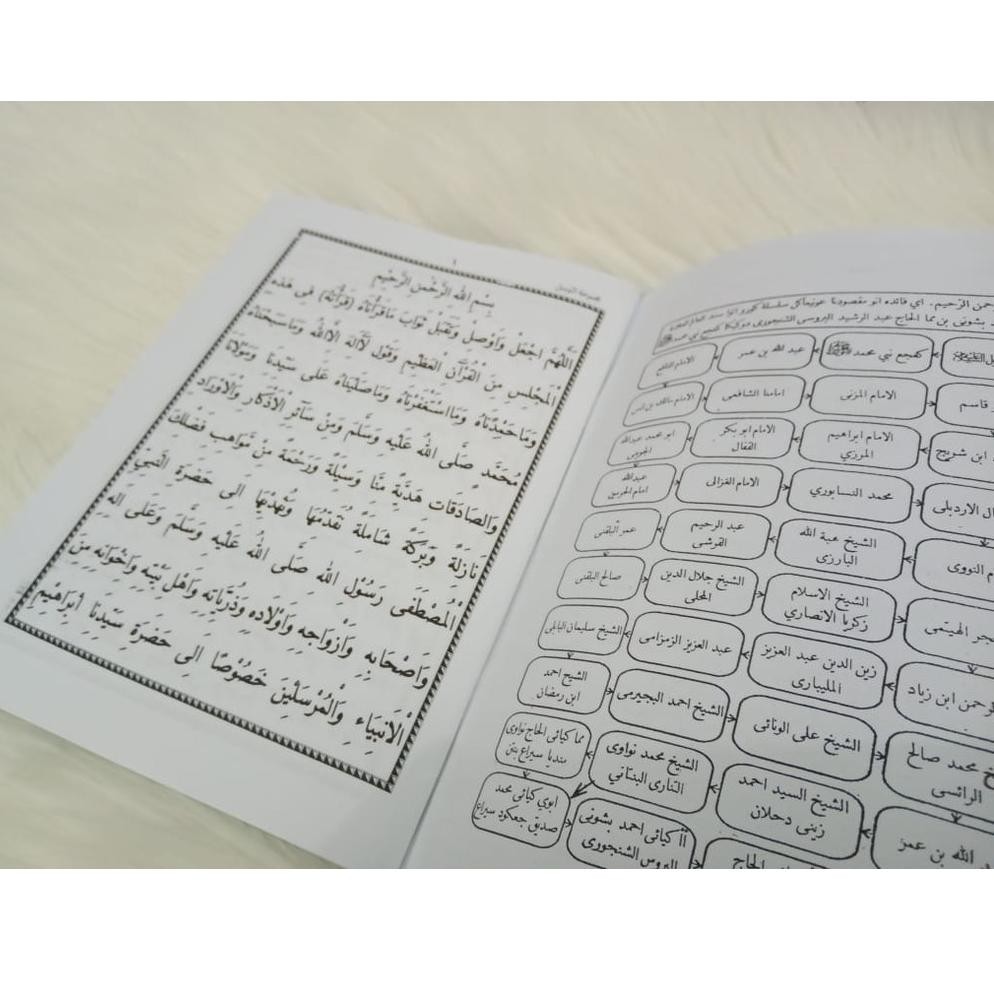 ١
بِسْمِ اللهِ الرَّحْمٰنِ الرَّحِيْمِ
اَللّٰهُمَّ اجْعَلْ وَاَوْصِلْ وَتَقَبَّلْ ثَوَابَ مَاقَرَأْنَاهُ (قَرَأْتُهُ) فِى هٰذِهِ
الْمَجْلِسِ مِنَ الْقُرْآنِ الْعَظِيْمِ وَقَوْلِ لَااِلٰهَ اِلَّااللهُ وَمَاسَبَّحْنَاهُ
وَمَاحَمِدْنَاهُ وَمَااسْتَغْفَرْنَاهُ وَمَاصَلَّيْنَاهُ عَلَى سَيِّدِنَا وَمَوْلَانَا
مُحَمَّدٍ صَلَّى اللهُ عَلَيْهِ وَسَلَّمَ وَمِنْ سَآئِرِ الْاَذْكَارِ وَالْاَوْرَادِ
وَالصَّادَقَاتِ هَدِيَّةً مِنَّا وَسِيْلَةً وَرَحْمَةً مِنْ مَوَاهِبِ فَضْلِكَ
نَازِلَةً وَبَرَكَةً شَامِلَةً نُقَدِّمُهَا وَنُهْدِيْهَا اِلَى حَضْرَةِ النَّبِيِّ
الْمُصْطَفَى رَسُوْلِ اللهِ صَلَّى اللهُ عَلَيْهِ وَسَلَّمَ وَعَلَى اٰلِهِ
وَاَصْحَابِهِ وَاَزْوَاجِهِ وَاَوْلَادِهِ وَذُرِّيَاتِهِ وَاَهْلِ بَيْتِهِ وَاِخْوَانِهِ مِنَ
الْاَنْبِيَاءِ وَالْمُرْسَلِيْنَ خُصُوْصًا اِلَى حَضْرَةِ سَيِّدِنَا اِبْرَاهِيْمِ
الرّحيم. اي فائده انو مقصودنا
بن مما الحاج عبد الرشيد البروسى الشنجورى
كفجع نبي محمد ﷺ
عبد الله بن عمر
الامام النافع
قاسم
الامام المزنى
امامنا الشافعى
الامام مالك بن انس
ابن شريج
الامام ابراهيم المروزي
الامام ابو بكر القفال
ابو محمد عبدالله الجوينى
الاردبلى
محمد النسابورى
الامام الغزالى
عبدالله امام الحرمين
النووى
الشيخ هبة الله البارزى
عبد الرحيم القرشى
عمر البلقنى
الهيتمى
الشيخ الاسلام زكريا الانصاري
الشيخ جلال الدين المحلى
صالح البلقنى
ابن زياد
زين الدين عبد العزيز المليبارى
عبد العزيز الزمزامى
الشيخ سليمان البابلى
محمد صالح الرائسى
الشيخ على الونائى
الشيخ احمد البجيرمى
الشيخ احمد ابن رمضان
الله بن عمر
الشيخ السيد احمد زينى دحلان
الشيخ محمد نواوى التنارى البنتاني
مما كيائى الحاج نواوى منديا سيراع بنتن
الحاج
كيائى احمد بشونى البروس الشنجورى
ابوي كيائى محمد صديق جعكود سيراع